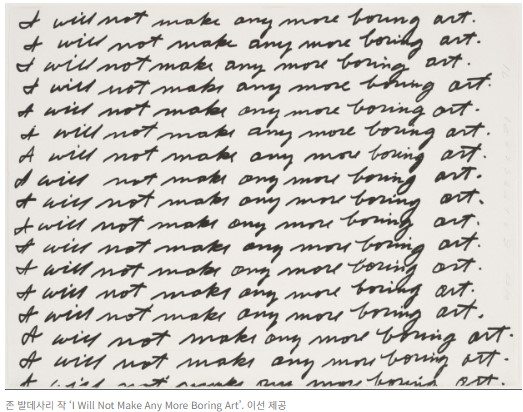 I will not make any more boring art.
I will not make any more boring art.
I will not make any more boring art.
I will not make any more boring art.
I will not make any more boring art.
I will not make any more boring art.
I will not make any more boring art.
I will not make any more boring art.
I will not make any more boring art.
I will not make any more boring art.
I will not make any more boring art.
I will not make any more boring art.
I will not make any more boring art.
I will not make any more boring art.
I will not make any more boring art.
I will not make any more boring art.
I will not make any more boring art.
존 발데사리 작 ‘I Will Not Make Any More Boring Art’. 이선 제공